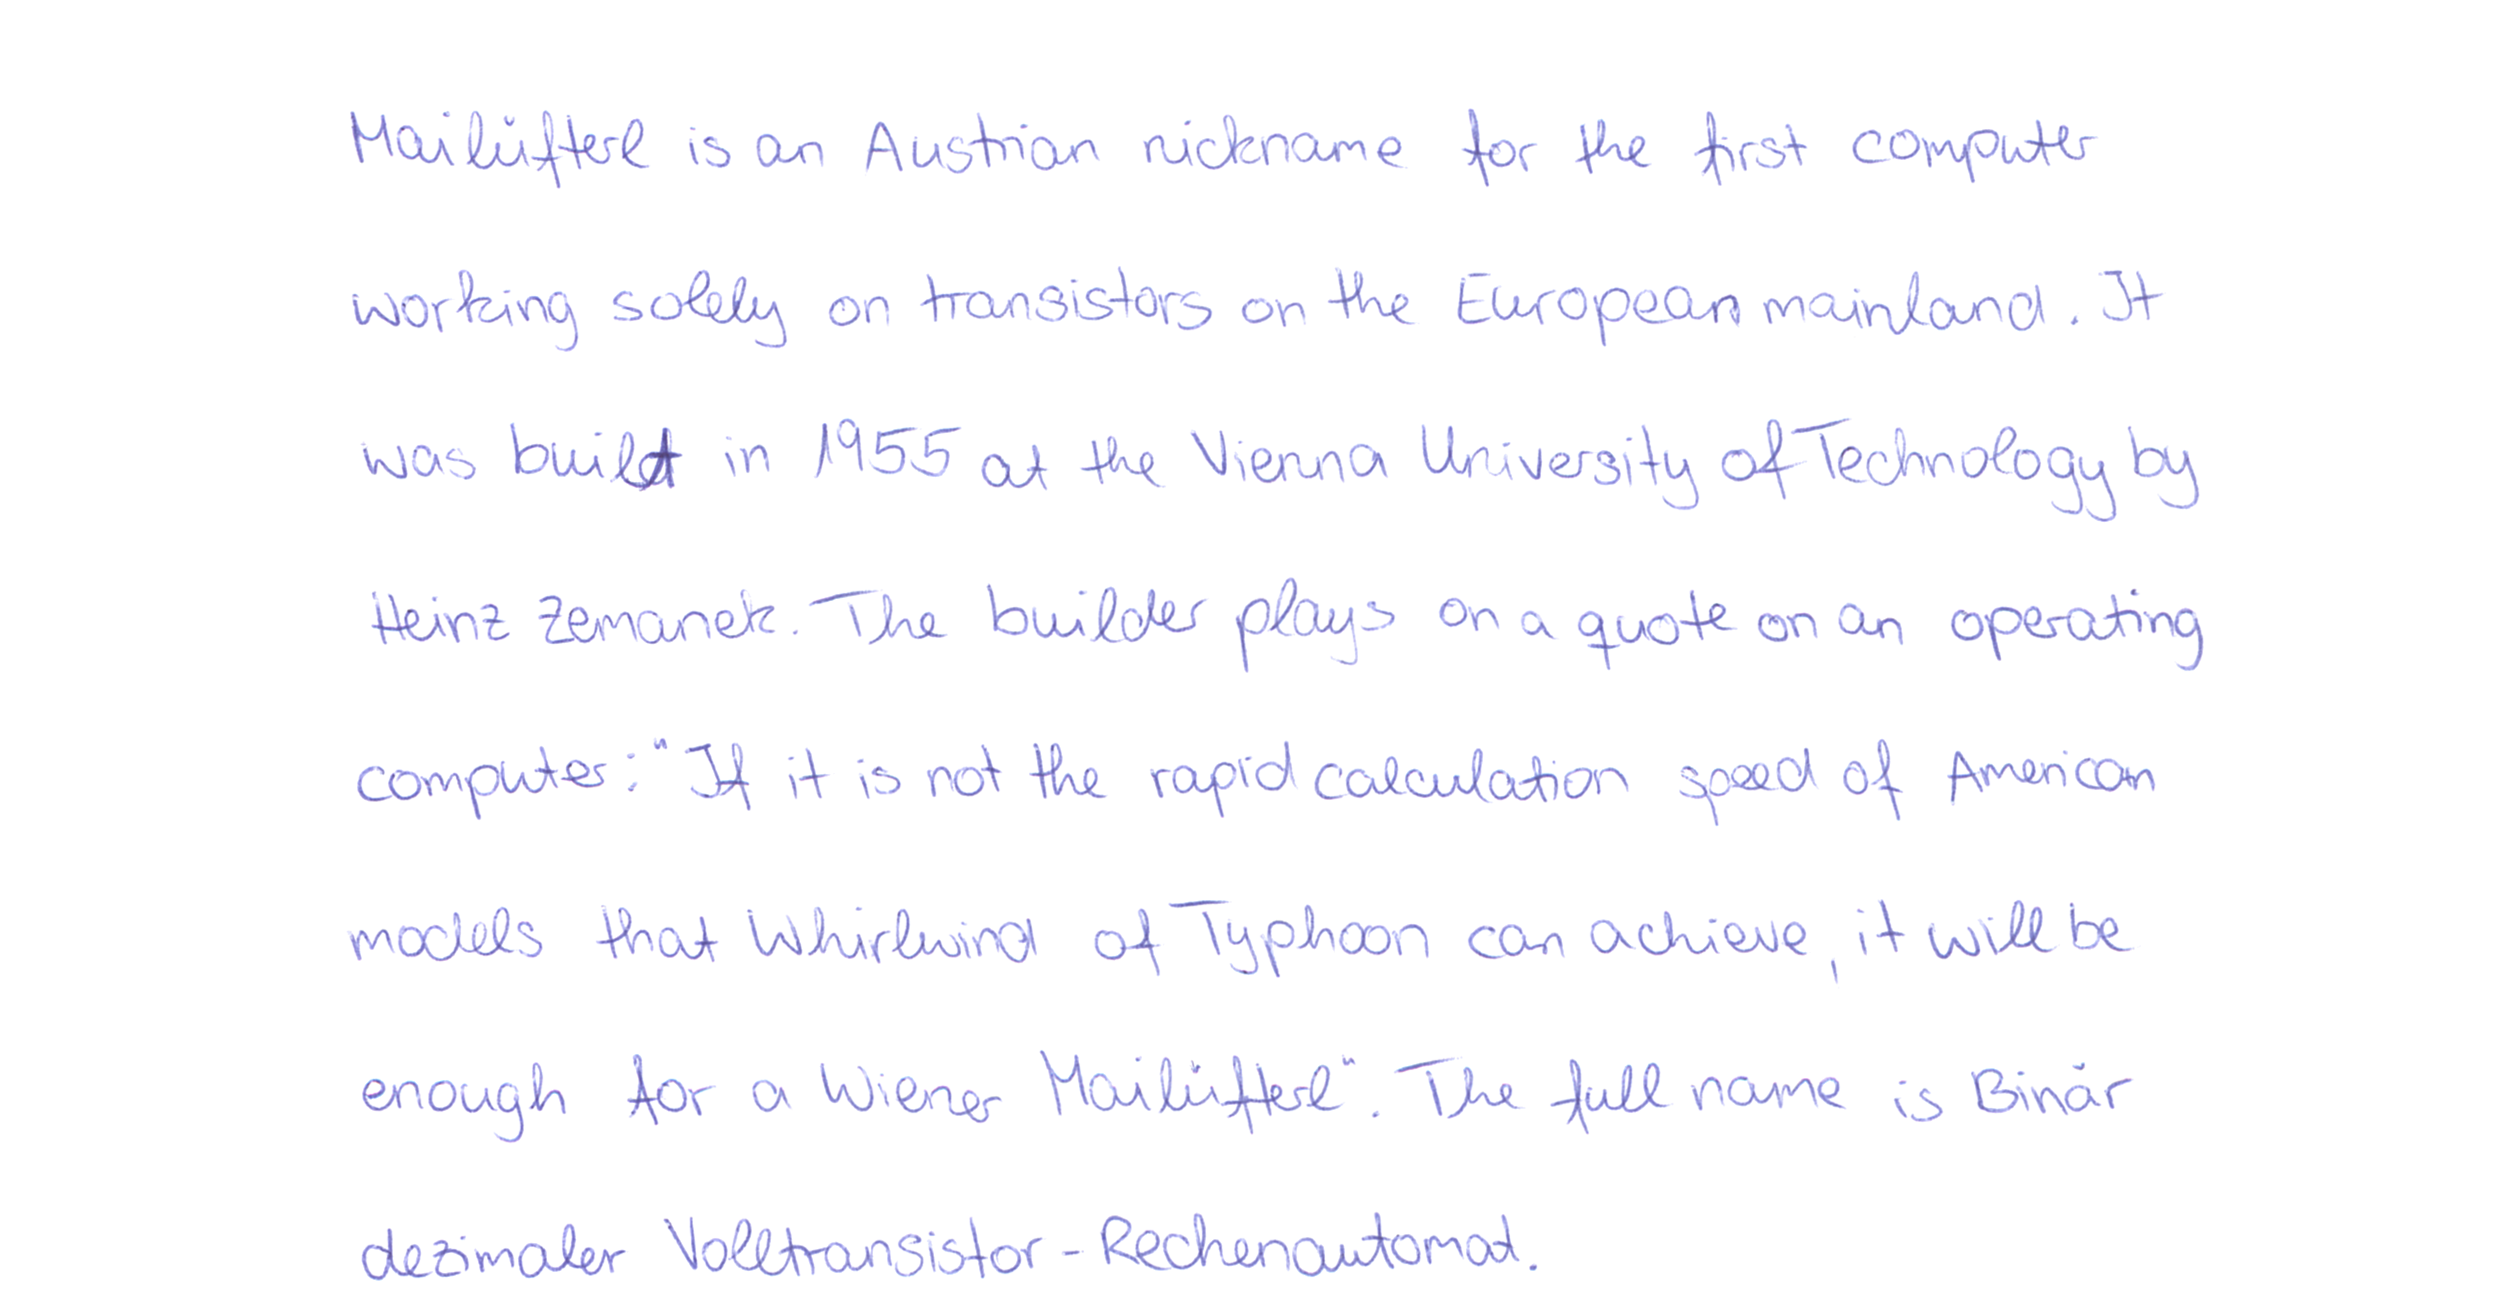 Mailüfterl is an Austrian nickname for the first computer
working solely on transistors on the European mainland. It
was built in 1955 at the Vienna University of Technology by
Heinz Zemanek. The builder plays on a quote on an operating
computer: "If it is not the rapid calculation speed of American
models that Whirlwind of Typhoon can achieve, it will be
enough for a Wiener Mailüfterl". The full name is Binär
dezimaler Volltransistor-Rechenautomat.